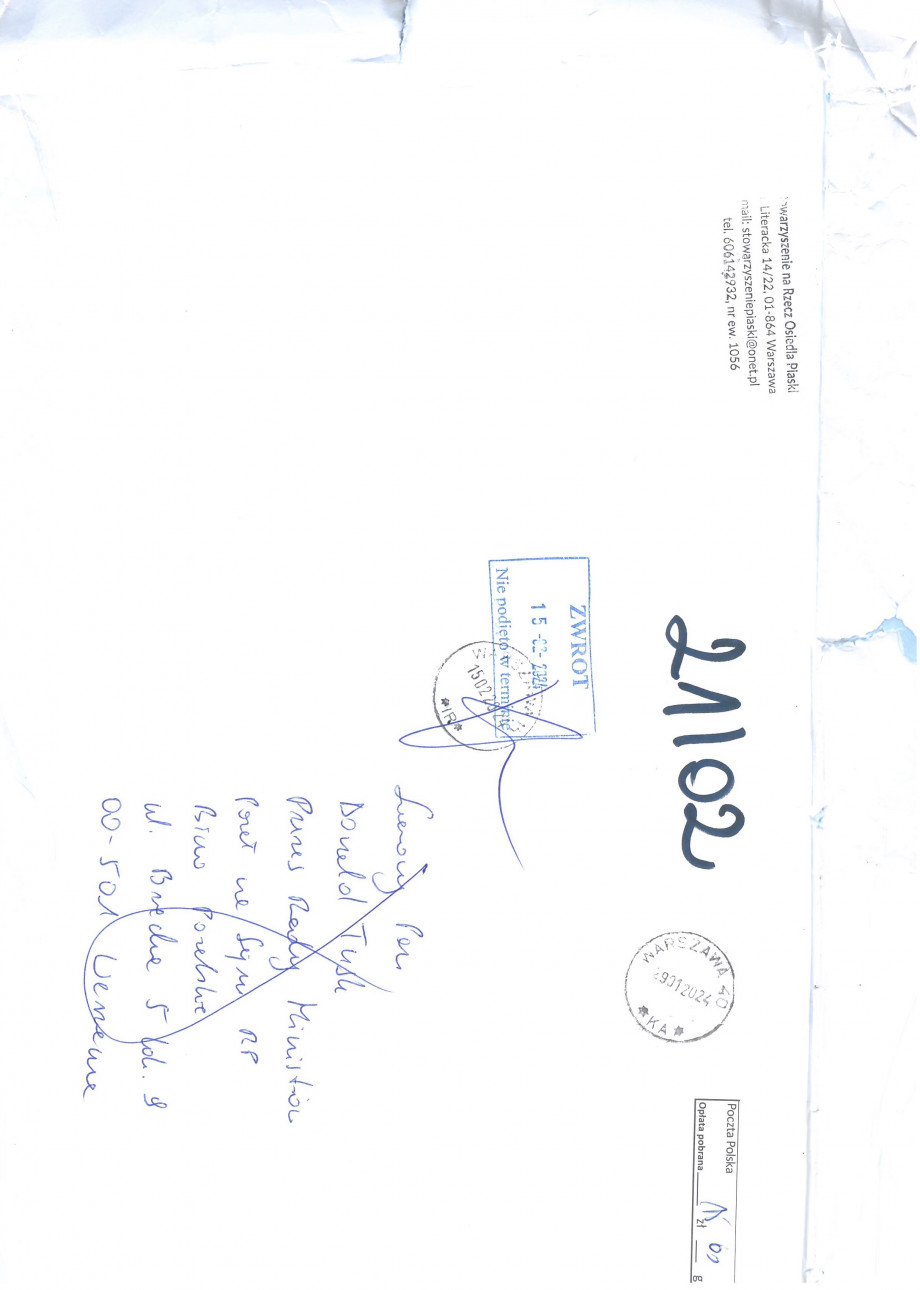 towarzyszenie na Rzecz Osiedla Piaski
Literacka 14/22, 01-864 Warszawa
mail: stowarzyszeniepiaski@onet.pl
tel. 606142932, nr ew. 1056
21/02
WARSZAWA 40
29012024
*KA*
Poczta Polska
Opłata pobrana zł g
ZWROT
15-02-2024
Nie podjęto w terminie
1502
*IR*
Szanowny Pan
Donald Tusk
Prezes Rady Ministrów
Poseł na Sejm RP
Biuro Poselskie
ul. Bracka 5 lok. 9
00-501 Warszawa